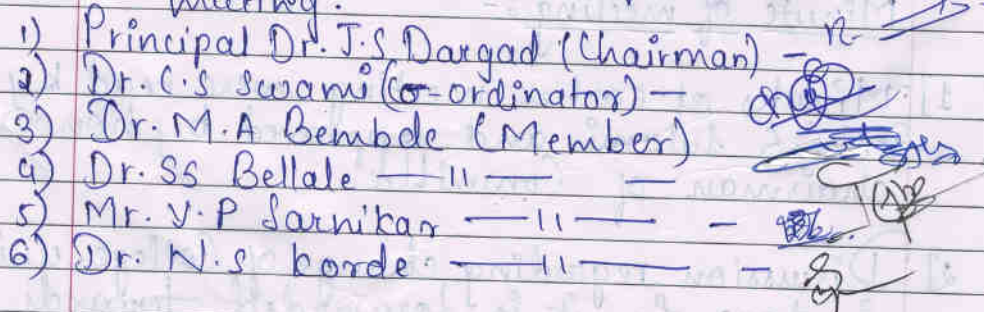 meeting.
1) Principal Dr. J.S Dargad (Chairman) -
2) Dr. C.S Swami (Co-ordinator) —
3) Dr. M.A Bembde (Member)
4) Dr. SS Bellale —— 11 —— —
5) Mr. V.P Sarnikar —— 11 —— -
6) Dr. N.S korde —— 11 —— -